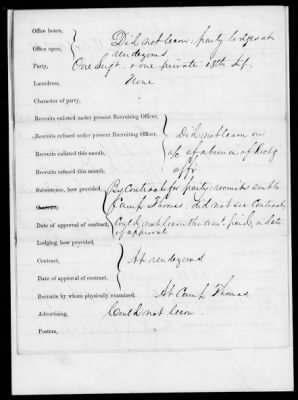 Office hours,
Office open, Did not learn; party lodges at
rendezvous
Party, One Sergt. & one private 18th Inf.
Laundress, None
Character of party,
Recruits enlisted under present Recruiting Officer,
Recruits refused under present Recruiting Officer, Did not learn on
Recruits enlisted this month, a/c of absence of Rectg
Recruits refused this month, offr.
Subsistence, how provided, By Contract for party; recruits sent to
Contract, Camp Thomas; did not see Contract
Date of approval of contract, Could not learn the cont. price, or date
of approval
Lodging, how provided,
Contract, At rendezvous
Date of approval of contract.
Recruits by whom physically examined, At Camp Thomas
Advertising, Could not learn.
Posters, "